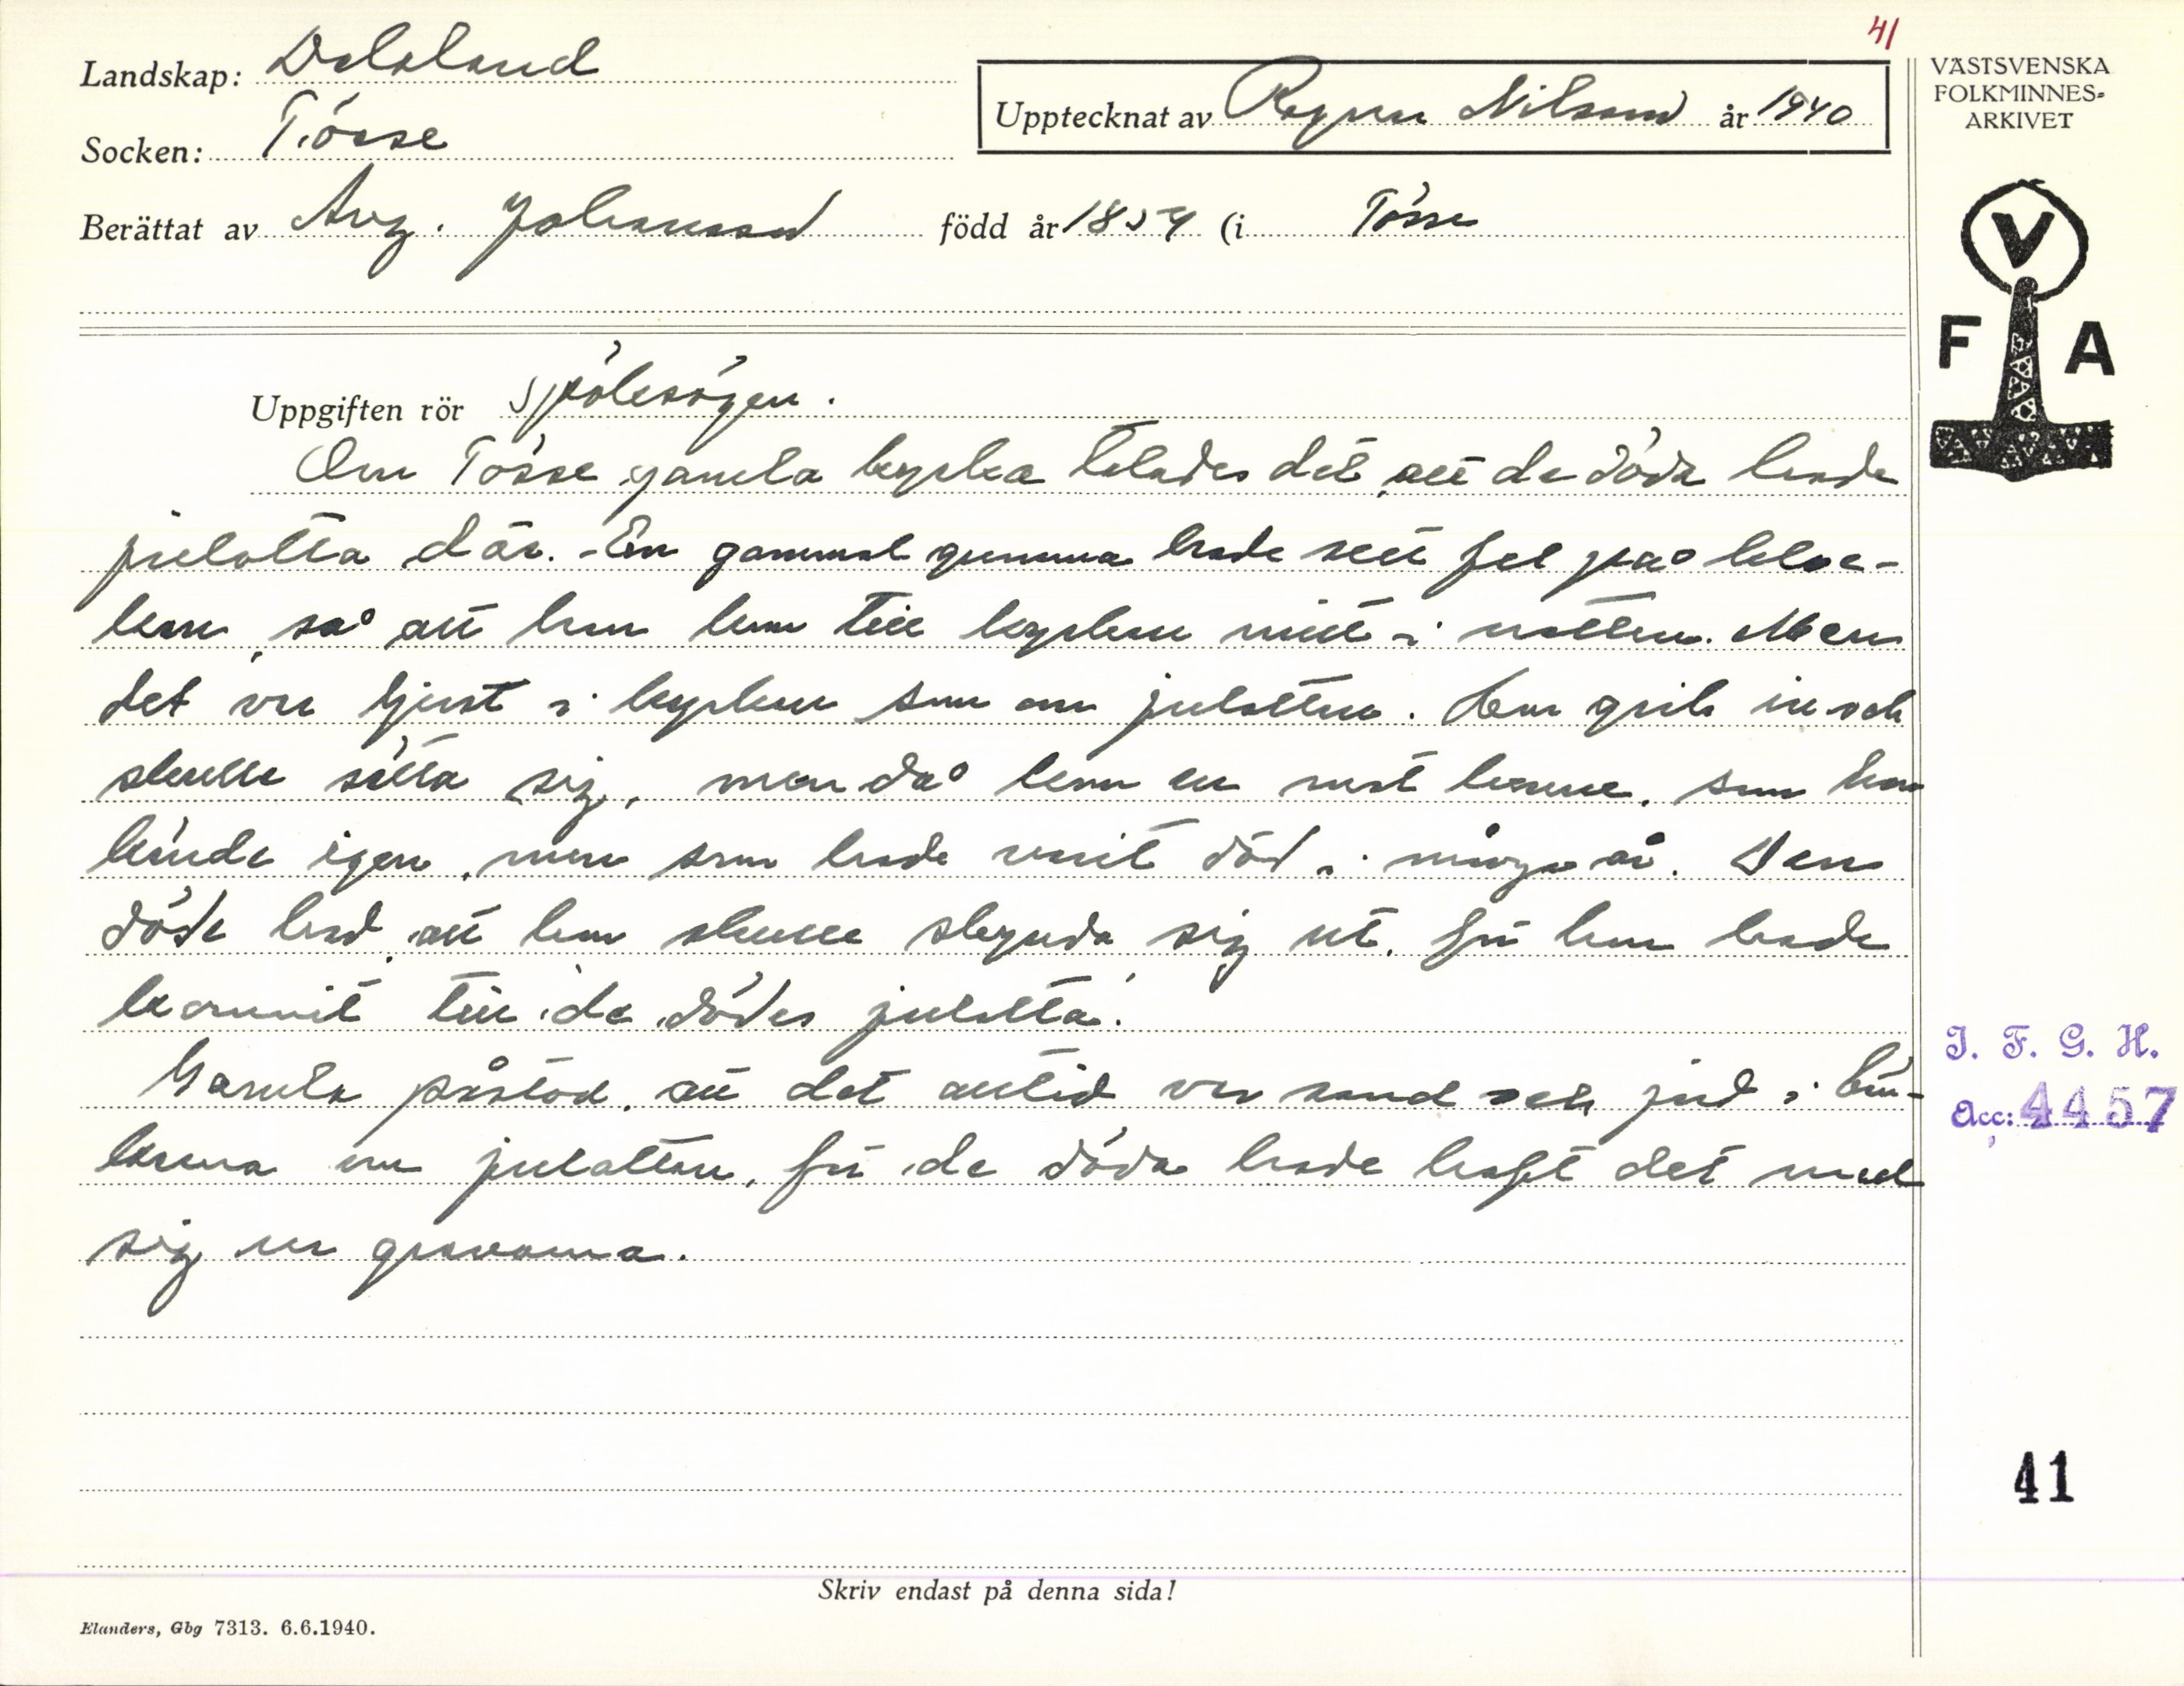 41
Landskap: Dalsland
Upptecknat av Ragnar Nilsson år 1940
Socken: Tösse
Berättat av Aug. Johansson född år 1854 (i Tösse
VÄSTSVENSKA
FOLKMINNES-
ARKIVET
V
F A
Uppgiften rör Spöksägen.
Om Tösse gamla kyrka talades det, att de döda hade
julotta där. En gammal gumma hade sett fel på kloc-
kan, så att hon kom till kyrkan mitt i natten. Men
det var ljust i kyrkan som om julottan. Hon gick in och
skulle sätta sig, men då kom en mot henne, som hon
kände igen, men som hade varit död i många år. Den
döde bad, att hon skulle skynda sig ut, för hon hade
kommit till de dödas julotta.
Gamla påstod, att det alltid var sand och jord i bän-
karna om julottan, för de döda hade haft det med
sig ur gravarna.
I. F. G. H.
Acc: 4457
41
Skriv endast på denna sida!
Elanders, Gbg 7313. 6.6.1940.